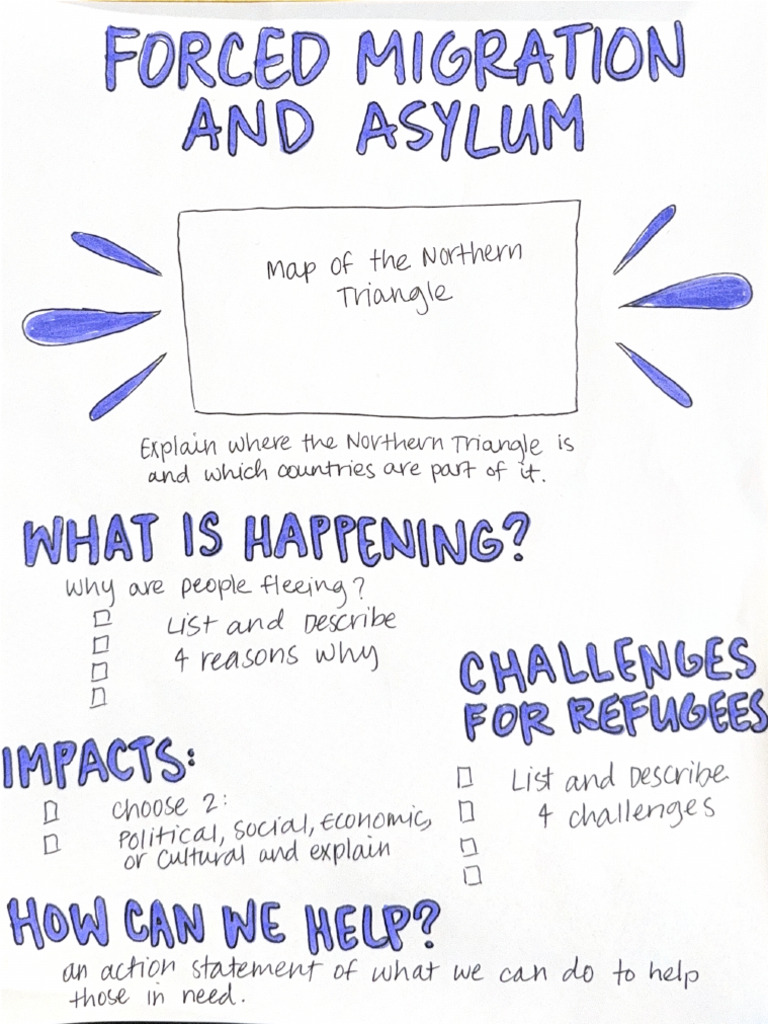 FORCED MIGRATION
AND ASYLUM
Map of the Northern
Triangle
Explain where the Northern Triangle is
and which countries are part of it.
WHAT IS HAPPENING?
Why are people fleeing?
List and Describe
4 reasons why
CHALLENGES
FOR REFUGEES
List and Describe
4 challenges
IMPACTS:
Choose 2:
Political, Social, Economic,
or Cultural and explain
HOW CAN WE HELP?
an action statement of what we can do to help
those in need.